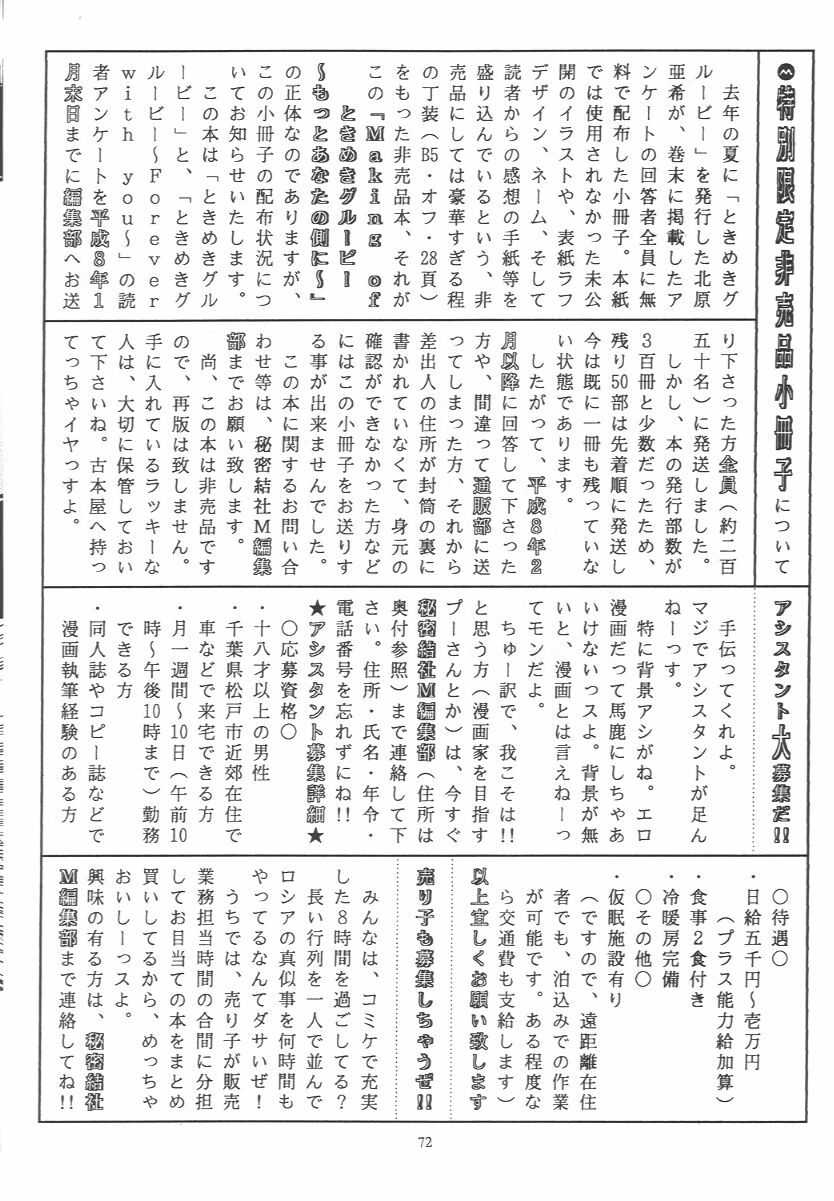 Ⓜ特別限定非売品小冊子について
　去年の夏に「ときめきグ
ルーピー」を発行した北原
亜希が、巻末に掲載したア
ンケートの回答者全員に無
料で配布した小冊子。本紙
では使用されなかった未公
開のイラストや、表紙ラフ
デザイン、ネーム、そして
読者からの感想の手紙等を
盛り込んでいるという、非
売品にしては豪華すぎる程
の丁装（B5・オフ・28頁）
をもった非売品本、それが
この『Making of
　ときめきグルーピー
～もっとあなたの側に～』
の正体なのでありますが、
この小冊子の配布状況につ
いてお知らせいたします。
　この本は「ときめきグル
ーピー」と、「ときめきグ
ルーピー～Forever
with you～」の読
者アンケートを平成8年1
月末日までに編集部へお送
り下さった方全員（約二百
五十名）に発送しました。
　しかし、本の発行部数が
3百冊と少数だったため、
残り50部は先着順に発送し
今は既に一冊も残っていな
い状態であります。
　したがって、平成8年2
月以降に回答して下さった
方や、間違って通販部に送
ってしまった方、それから
差出人の住所が封筒の裏に
書かれていなくて、身元の
確認ができなかった方など
にはこの小冊子をお送りす
る事が出来ませんでした。
　この本に関するお問い合
わせ等は、秘密結社M編集
部までお願い致します。
　尚、この本は非売品です
ので、再版は致しません。
手に入れているラッキーな
人は、大切に保管しておい
て下さいね。古本屋へ持っ
てっちゃイヤっすよ。
アシスタント大募集だ!!
　手伝ってくれよ。
マジでアシスタントが足ん
ねーっす。
　特に背景アシがね。エロ
漫画だって馬鹿にしちゃあ
いけないっスよ。背景が無
いと、漫画とは言えねーっ
てモンだよ。
　ちゅー訳で、我こそは!!
と思う方（漫画家を目指す
プーさんとか）は、今すぐ
秘密結社M編集部（住所は
奥付参照）まで連絡して下
さい。住所・氏名・年令・
電話番号を忘れずにね!!
★アシスタント募集詳細★
　○応募資格○
・十八才以上の男性
・千葉県松戸市近郊在住で
　車などで来宅できる方
・月一週間～10日（午前10
　時～午後10時まで）勤務
　できる方
・同人誌やコピー誌などで
　漫画執筆経験のある方
　○待遇○
・日給五千円～壱万円
　　（プラス能力給加算）
・食事2食付き
・冷暖房完備
　○その他○
・仮眠施設有り
　（ですので、遠距離在住
　者でも、泊込みでの作業
　が可能です。ある程度な
　ら交通費も支給します）
以上宜しくお願い致します
売り子も募集しちゃうぜ!!
　みんなは、コミケで充実
した8時間を過ごしてる？
　長い行列を一人で並んで
ロシアの真似事を何時間も
やってるなんてダサいぜ！
　うちでは、売り子が販売
業務担当時間の合間に分担
してお目当ての本をまとめ
買いしてるから、めっちゃ
おいしーっスよ。
興味の有る方は、秘密結社
M編集部まで連絡してね!!
72